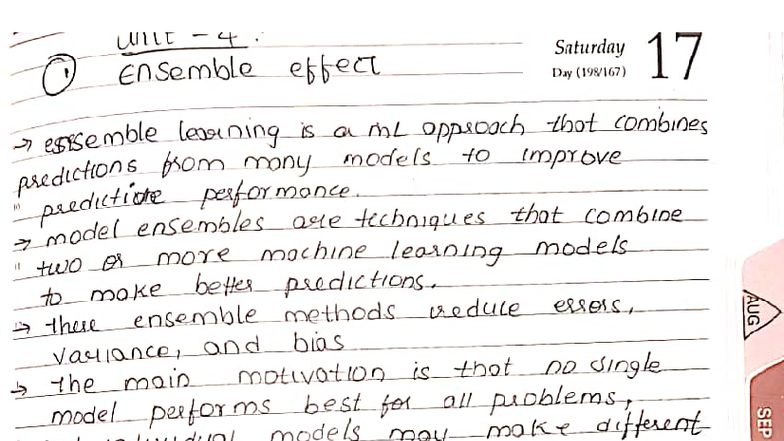 Unit - 4.
Saturday 17
Day (198/167)
① Ensemble effect
→ ensemble learning is a ML approach that combines
predictions from many models to improve
" predictive performance.
→ model ensembles are techniques that combine
" two or more machine learning models
to make better predictions.
→ these ensemble methods reduce errors,
variance, and bias
→ the main motivation is that no single
model performs best for all problems,
models may make different
AUG
SEP